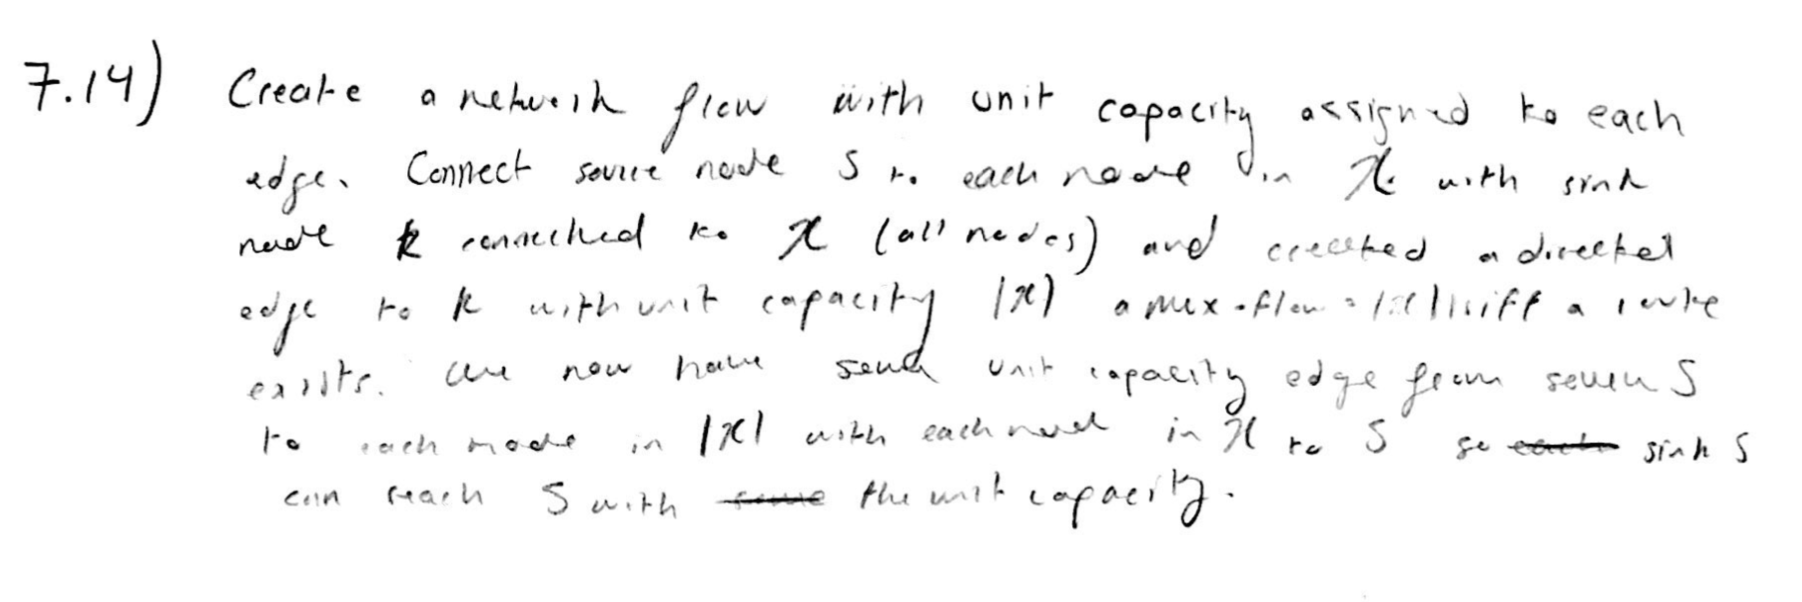 7.14) Create a network flow with unit capacity assigned to each
edge. Connect source node S to each node in X with sink
node k connected to X (all nodes) and created a directed
edge to k with unit capacity |X| a max-flow = |X| iff a route
exists. we now have send unit capacity edge from S
to each node in |X| with each node in X to S so sink S
can reach S with the unit capacity.